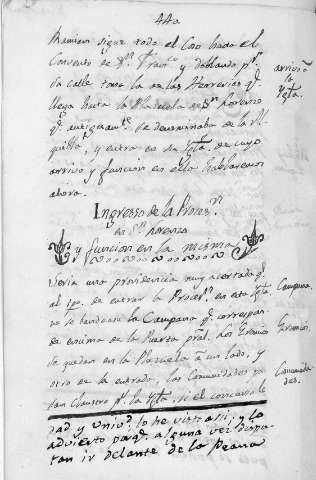 440
sigue todo el Coso hasta el
Convento de Sn. Franco. y doblando pr.
su calle toma la de las Herrerias qe.
llega hasta la Plazuela de Sn. Lorenzo
qe. antiguamte. se denominaba de la
y entra en su Yga. de cuyo
arrivo y funcion en ella hablaremos
ahora.
arrivo â
la
Yga.
Ingresso de la Proces.n
en Sn. Lorenzo
y funcion en la mesma
Seria una providencia muy acertada qe.
al tpo. de entrar la Procesn. en esta Yga.
no se bandease la Campana qe. correspon-
de encima de la Puerta pral. Los Gremios
se quedan en la Plazuela â un lado, y
otro de la entrada, las Comunidades pa
san Claustro pr. la Yga. si el concurso le
Campana.
Gremios.
Comunida
des.
dad y Univd. lo he visto assi; y lo
advierto paraqe. alguna vez
tan ir delante de la Peana